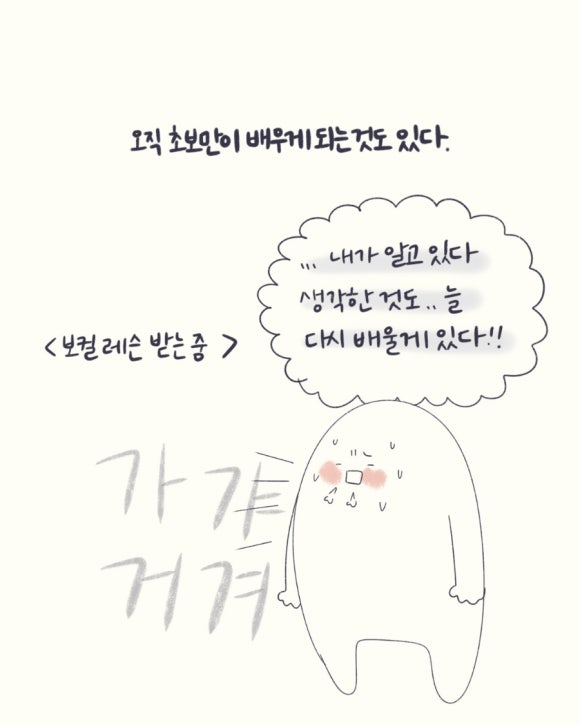 오직 초보만이 배우게 되는것도 있다.
... 내가 알고 있다
생각한 것도.. 늘
다시 배울게 있다!!
<보컬 레슨 받는 중>
가 갸
거 겨